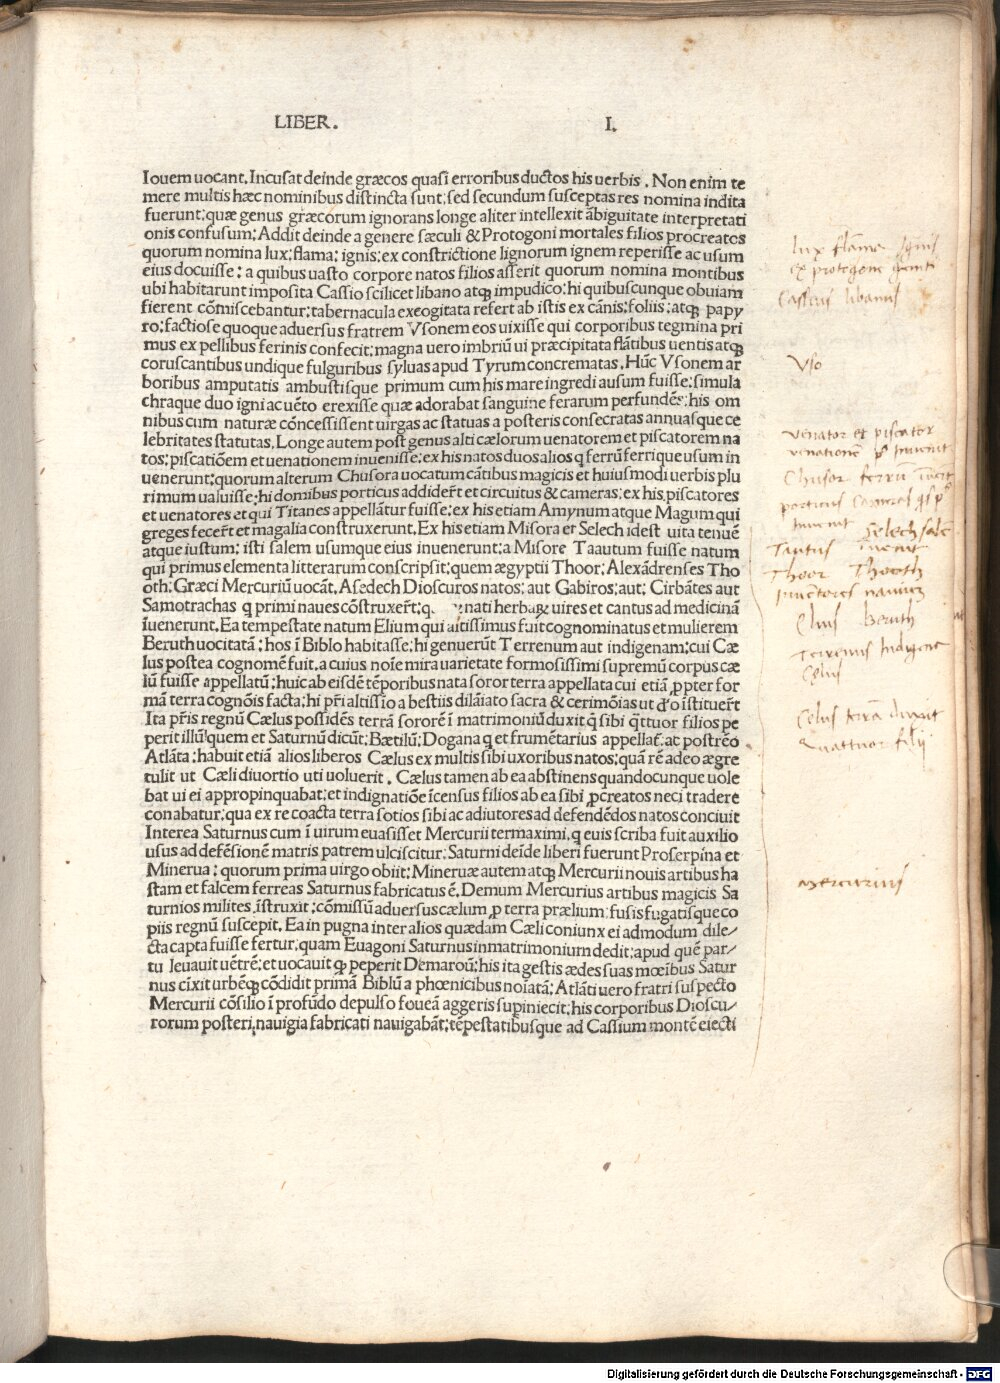 LIBER. I.
Iouem uocant. Incusat deinde græcos quasi erroribus ductos his uerbis. Non enim te
mere multis hæc nominibus distincta sunt: sed secundum susceptas res nomina indita
fuerunt: quæ genus græcorum ignorans longe aliter intellexit ābiguitate interpretati
onis confusum: Addit deinde a genere sæculi & Protogoni mortales filios procreatos
quorum nomina lux: flama: ignis: ex constrictione lignorum ignem reperisse ac usum
eius docuisse: a quibus uasto corpore natos filios asserit quorum nomina montibus
ubi habitarunt imposita Cassio scilicet libano atqꝫ impudico: hi quibuscunque obuiam
fierent cōmiscebantur: tabernacula exeogitata refert ab istis ex cānis: foliis: atqꝫ papy
ro: factiose quoque aduersus fratrem Vsonem eos uixisse qui corporibus tegmina pri
mus ex pellibus ferinis confecit: magna uero imbriū ui præcipitata flātibus uentis atqꝫ
coruscantibus undique fulguribus syluas apud Tyrum concrematas. Hūc Vsonem ar
boribus amputatis ambustisque primum cum his mare ingredi ausum fuisse: simula
chraque duo igni ac uēto erexisse quæ adorabat sanguine ferarum perfundēs: his om
nibus cum naturæ cōncessissent uirgas ac statuas a posteris consecratas annuasque ce
lebritates statutas. Longe autem post genus alti cælorum uenatorem et piscatorem na
tos: piscatiōem et uenationem inuenisse: ex his natos duos alios q ferrū ferrique usum in
uenerunt: quorum alterum Chusora uocatum cātibus magicis et huiusmodi uerbis plu
rimum ualuisse: hi domibus porticus addiderr̄t et circuitus & cameras: ex his piscatores
et uenatores et qui Titanes appellātur fuisse: ex his etiam Amynum atque Magum qui
greges fecerr̄t et magalia construxerunt. Ex his etiam Misora et Selech idest uita tenuē
atque iustum: isti salem usumque eius inuenerunt: a Misore Taautum fuisse natum
qui primus elementa litterarum conscripsit: quem ægyptii Thoor: Alexādrenses Tho
oth: Græci Mercuriū uocāt. A sedech Dioscuros natos: aut Gabiros: aut: Cirbātes aut
Samotrachas q primi naues cōstruxerr̄t: q nati herbaꝝ uires et cantus ad medicinā
īuenerunt. Ea tempestate natum Elium qui altissimus fuit cognominatus et mulierem
Beruth uocitatā: hos ī Biblo habitasse: hi genuerūt Terrenum aut indigenam: cui Cæ
lus postea cognomē fuit. a cuius noīe mira uarietate formosissimi supremū corpus cæ
lū fuisse appellatū: huic ab eisdē tēporibus nata soror terra appellata cui etiā ꝓpter for
mā terra cognōis facta: hi pr̄i altissīo a bestiis dilāiato sacra & cerimōias ut d'o īstituerr̄t
Ita pr̄is regnū Cælus possidēs terrā sororē ī matrimoniū duxit q̄ sibi q̄ttuor filios pe
perit illū quem et Saturnū dicūt: Bætilū: Dogana q et frumētarius appellat̄. ac postrēo
Atlāta: habuit etiā alios liberos Cælus ex multis sibi uxoribus natos: quā rē adeo ægre
tulit ut Cæli diuortio uti uoluerit. Cælus tamen ab ea abstinens quandocunque uole
bat ui ei appropinquabat: et indignatiōe īcensus filios ab ea sibi ꝓcreatos neci tradere
conabatur: qua ex re coacta terra sotios sibi ac adiutores ad defendēdos natos conciuit
Interea Saturnus cum ī uirum euasisset Mercurii termaximi, q euis scriba fuit auxilio
usus ad defēsionē matris patrem ulciscitur: Saturni deīde liberi fuerunt Proserpīna et
Minerua: quorum prima uirgo obiit: Mineruæ autem atqꝫ Mercurii nouis artibus ha
stam et falcem ferreas Saturnus fabricatus ē. Demum Mercurius artibus magicis Sa
turnios milites īstruxit: cōmissū aduersus cælum ꝓ terra prælium: fusis fugatisque co
piis regnū suscepit. Ea in pugna inter alios quædam Cæli coniunx ei admodum dile/
cta capta fuisse fertur, quam Euagoni Saturnus in matrimonium dedit: apud quē par/
tu leuauit uētrē: et uocauit qꝫ peperit Demaroū: his ita gestis ædes suas mœibus Satur
nus cīxit urbēqꝫ cōdidit primā Biblū a phœnicibus noīatā: Atlāti uero fratri suspecto
Mercurii cōsilio ī profūdo depulso foueā aggeris supiniecit: his corporibus Dioscu/
rorum posteri, nauigia fabricati nauigabāt: tēpestatibusque ad Cassium montē eiecti
lux flāma Ignis
ex protogono geniti
Cassius libanus
Vso
venator et piscator
venationē p inuenit
Chusor ferrū inuēit
porticus Cameras
inuenit Selech salē
Tautus inuenit
Thoor Thooth
inuentores nauium
Elius Beruth
Terrenus Indigena
Celus
Celus terrā duxit
Quattuor filij
Mercurius
Digitalisierung gefördert durch die Deutsche Forschungsgemeinschaft - DFG